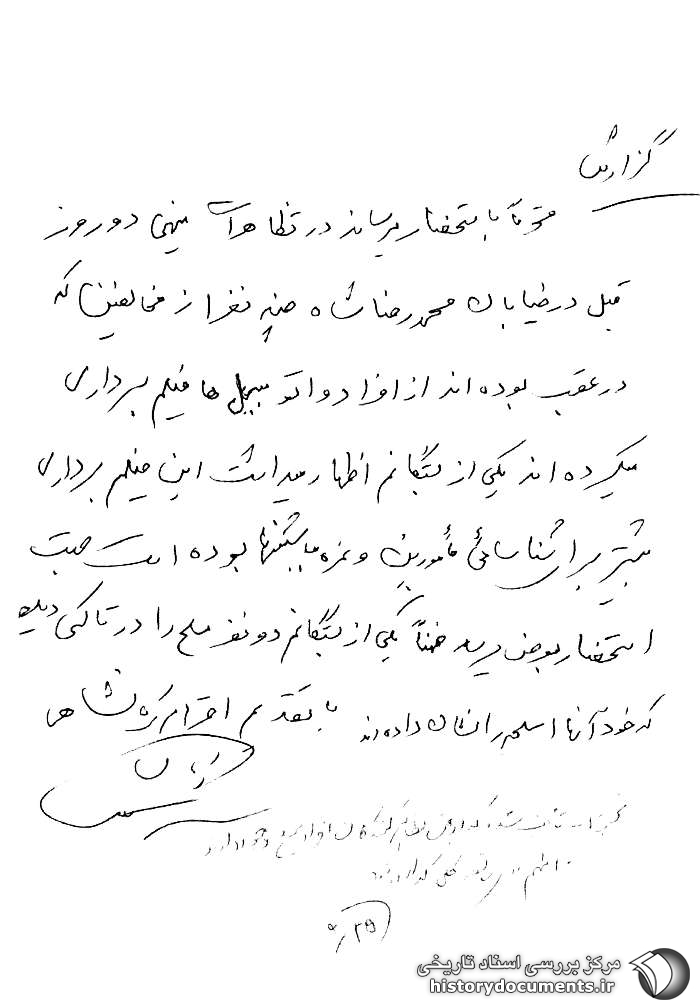 گزارش
محترماً باستحضار میرساند در تظاهرات دو روز
قبل در خیابان محمدرضا شاه چند نفر از مخالفین که
در عقب بوده اند از افراد و اتومبیل ها فیلم برداری
میکرده اند یکی از بستگانم اظهار میداشت این فیلم برداری
بیشتر برای شناسائی مأمورین و نمره ماشینها بوده است جهت
استحضار بعرض رسید ضمناً یکی از بستگانم دو نفر مسلح را در تاکسی دیده
که خود آنها اسلحه را نشان داده اند با تقدیم احترام کرمانشاهی
۹/۲۵
مرکز بررسی اسناد تاریخی
historydocuments.ir